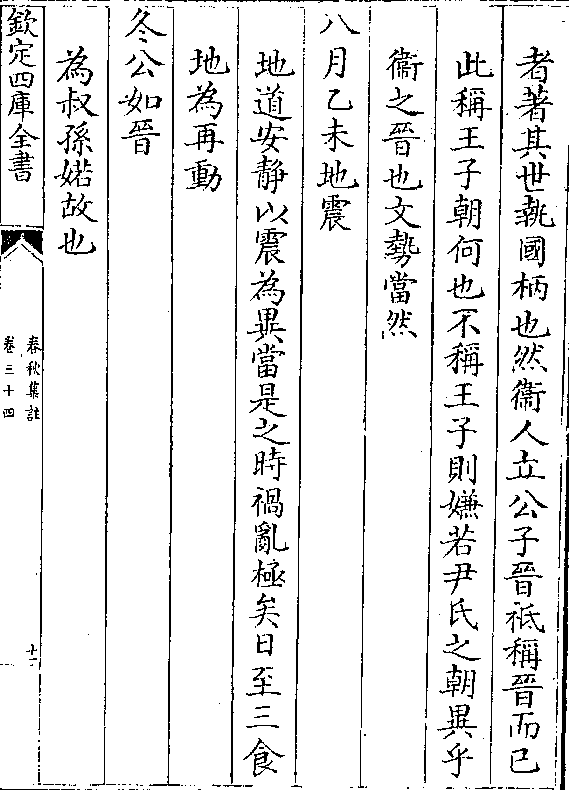 者著其世執國柄也然衞人立公子晉祗稱晉而已
此稱王子朝何也不稱王子則嫌若尹氏之朝異乎
衞之晉也文勢當然
八月乙未地震
地道安静以震為異當是之時禍亂極矣日至三食
地為再動
冬公如晉
為叔孫婼故也
欽定四庫全書
春秋集註
卷三十四